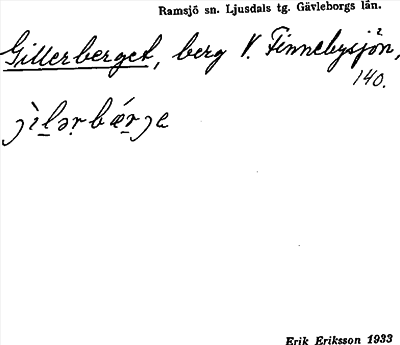 Ramsjö sn. Ljusdals tg. Gävleborgs län.
Gillerberget, berg V. Finnebysjön,
140.
jìlərbǽrje
Erik Eriksson 1933